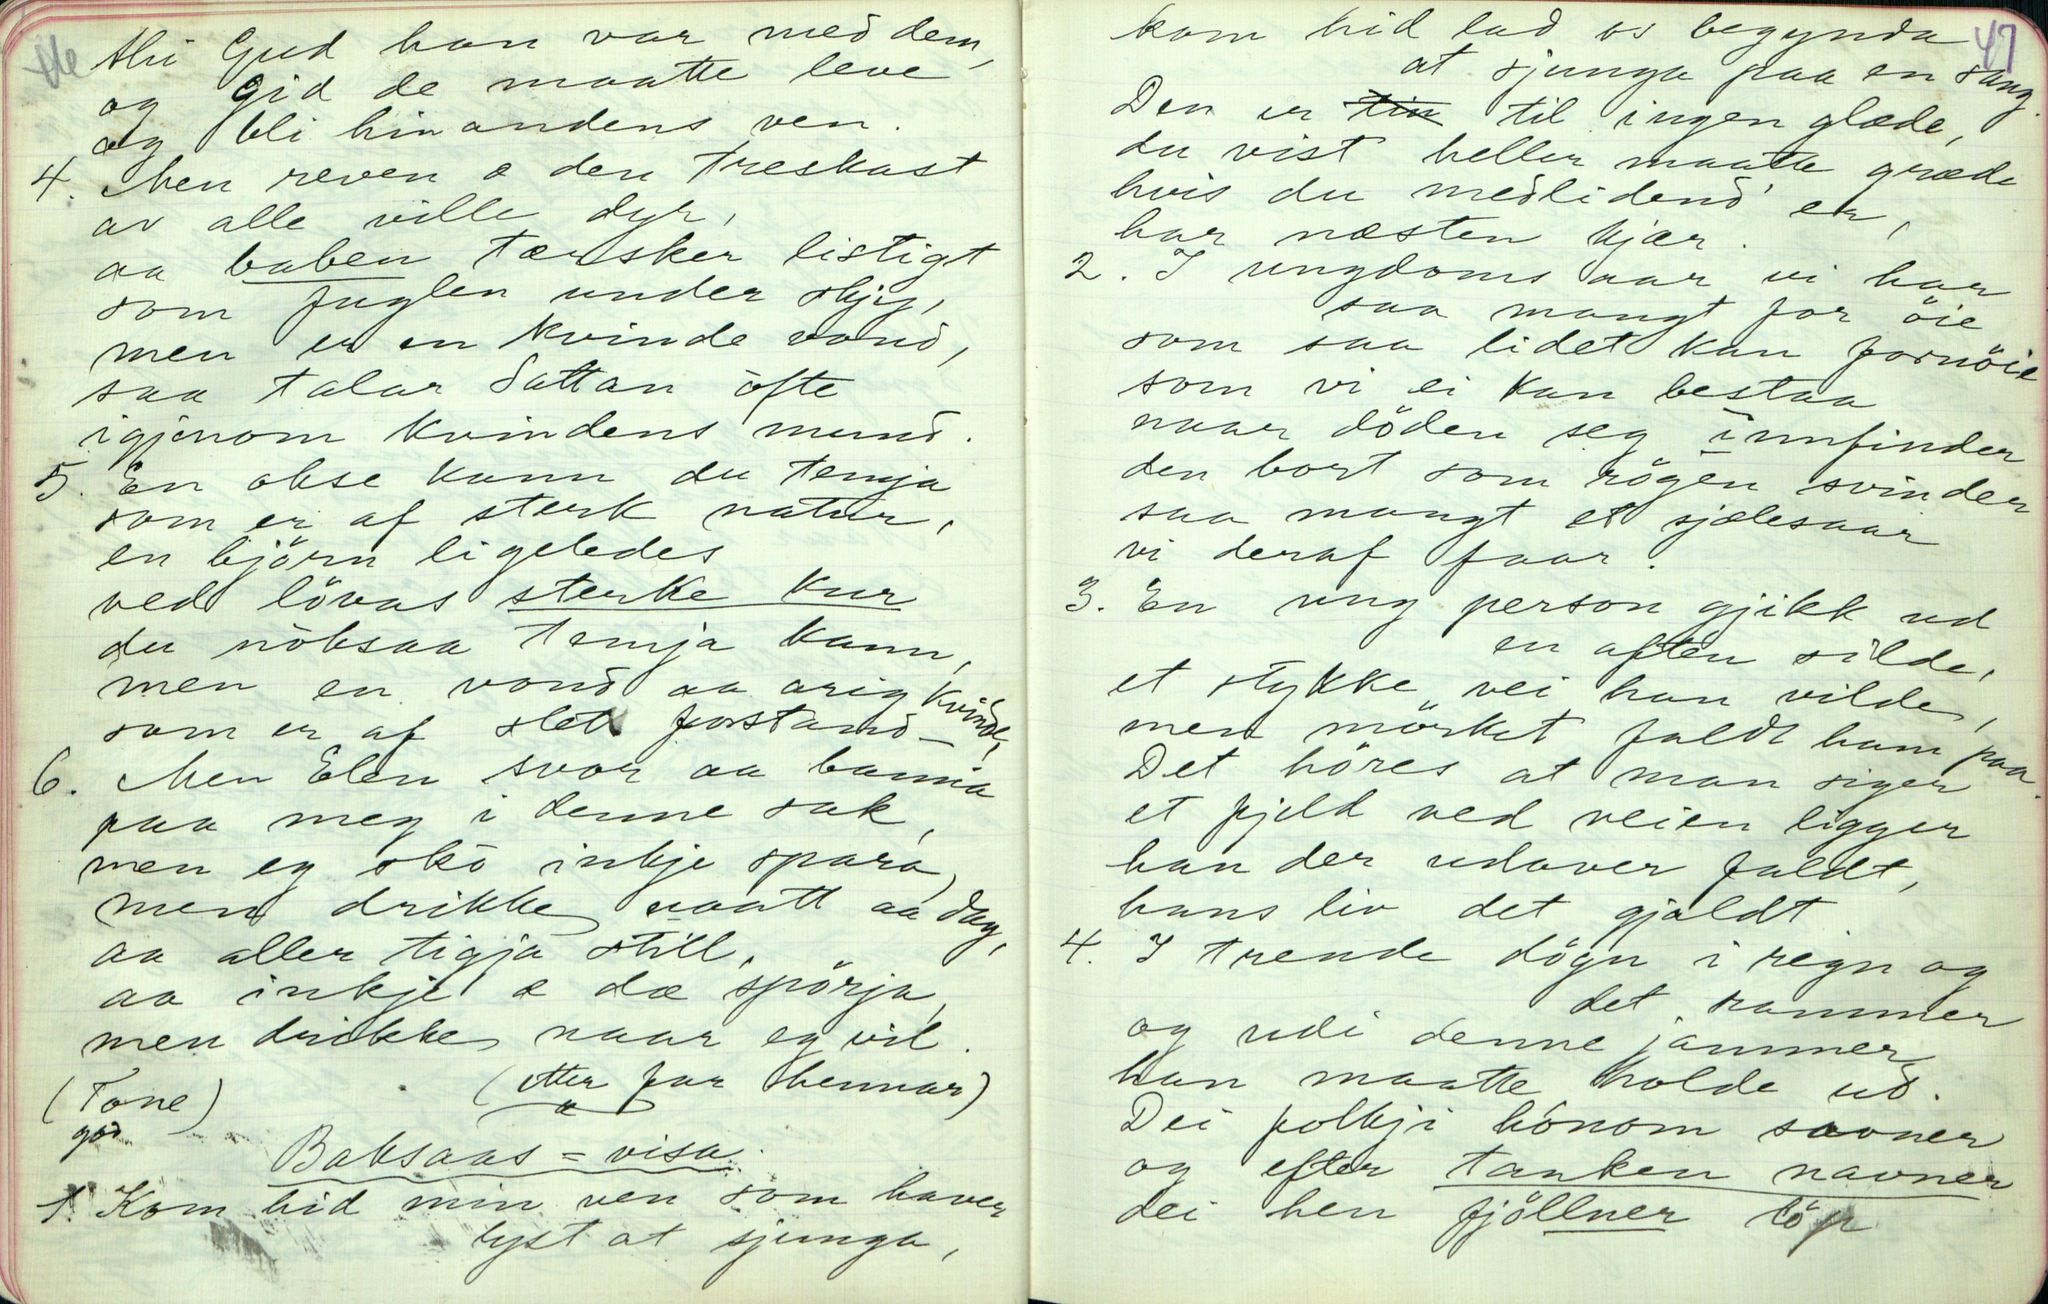 46
thi Gud han var med dem,
og Gid de maatte leve
og bli hinandens ven.
4. Men reven æ den treskast
av alle ville dyr,
aa baben tærsker listigt
som fuglen under skjy,
men er en kvinde vond,
saa talar Sattan ofte
igjenom kvindens mund.
5. En okse kann du temja
som er af sterk natur,
en björn ligeledes
ved lövas sterke kur
du nôksaa temja kann,
men en vond aa arig kvinde,
som er af slet forstand –
6. Men Elen svor aa banna
paa meg i denne sak,
men eg skô inkje spara,
men drikke naatt aa dag,
aa aller tigja still,
aa inkje æ dæ spörja,
men drikke naar eg vil.
(Tone) (etter far hennar)
god
Baksaas = visa.
1. Kom hid min ven som haver
lyst at sjunga,
47
kom hid lad os begynda
at sjunga paa en sang.
Den er til ingen glæde,
du vist heller maatte græde
hvis du medlidend' er,
har næsten kjær.
2. I ungdoms aar vi har
saa mangt for öie
som saa lidet kan fornöie
som vi ei kan bestaa
naar döden seg innfinder
den bort som rögen svinder
saa mangt et sjælesaar
vi deraf faar.
3. En ung person gjikk ud
en aften silde,
et stykke vei han vilde,
men mörket faldt ham paa.
Det höres at man siger
et fjeld ved veien ligger
han der udover faldt,
hans liv det gjaldt
4. I trende dögn i regn og
det rammer
og udi denne jammer
han maatte holde ud.
Dei folkji hônom savner
og efter tanken navner
dei hen fjöllner löp